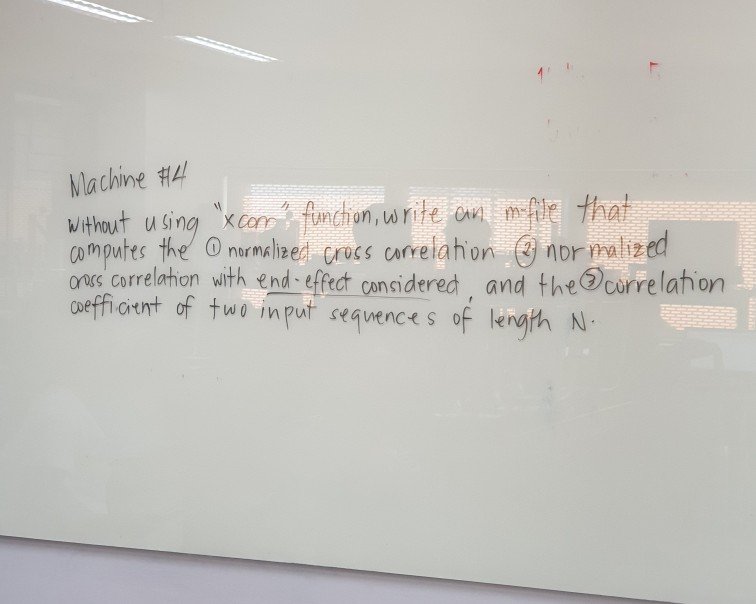 Machine #4
without using "xcorr" function, write an m-file that
computes the ① normalized cross correlation ② normalized
cross correlation with end-effect considered, and the ③ correlation
coefficient of two input sequences of length N.